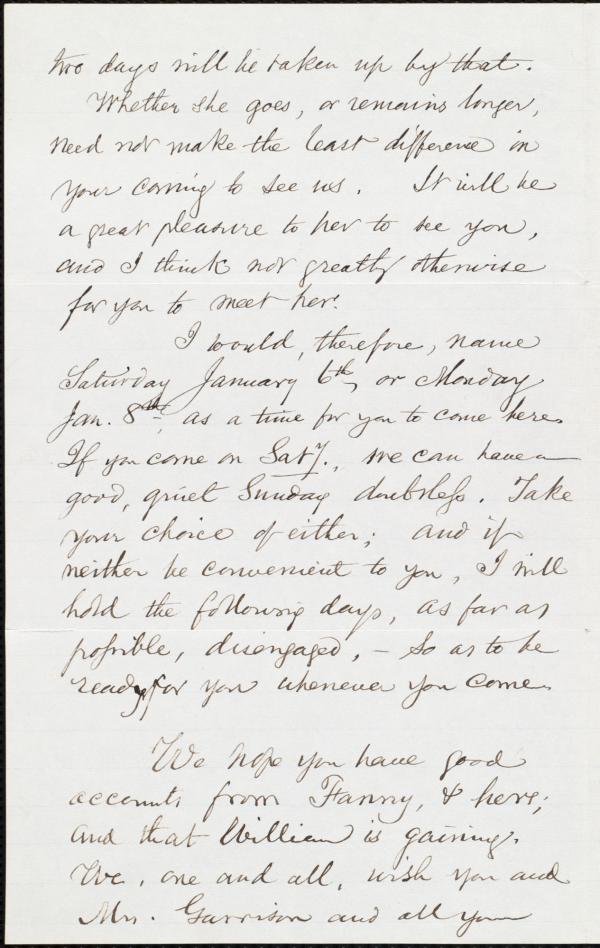 two days will be taken up by that.
Whether she goes, or remains longer,
need not make the least difference in
your coming to see us. It will be
a great pleasure to her to see you,
and I think not greatly otherwise
for you to meet her.
I would, therefore, name
Saturday January 6th, or Monday
Jan. 8th, as a time for you to come here.
If you come on Saty., we can have a
good, quiet Sunday doubtless. Take
your choice of either; and if
neither be convenient to you, I will
hold the following days, as far as
possible, disengaged, — so as to be
ready for you whenever you come.
We hope you have good
accounts from Fanny, & hers;
and that William is gaining.
We, one and all, wish you and
Mrs. Garrison and all your